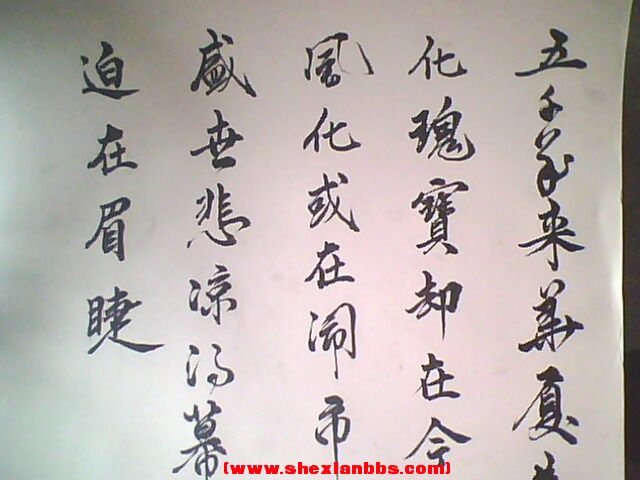 五千年来华夏
化瑰寶却在今
風化或在闹市
盛世悲凉
迫在眉睫
(www.shexianbbs.com)